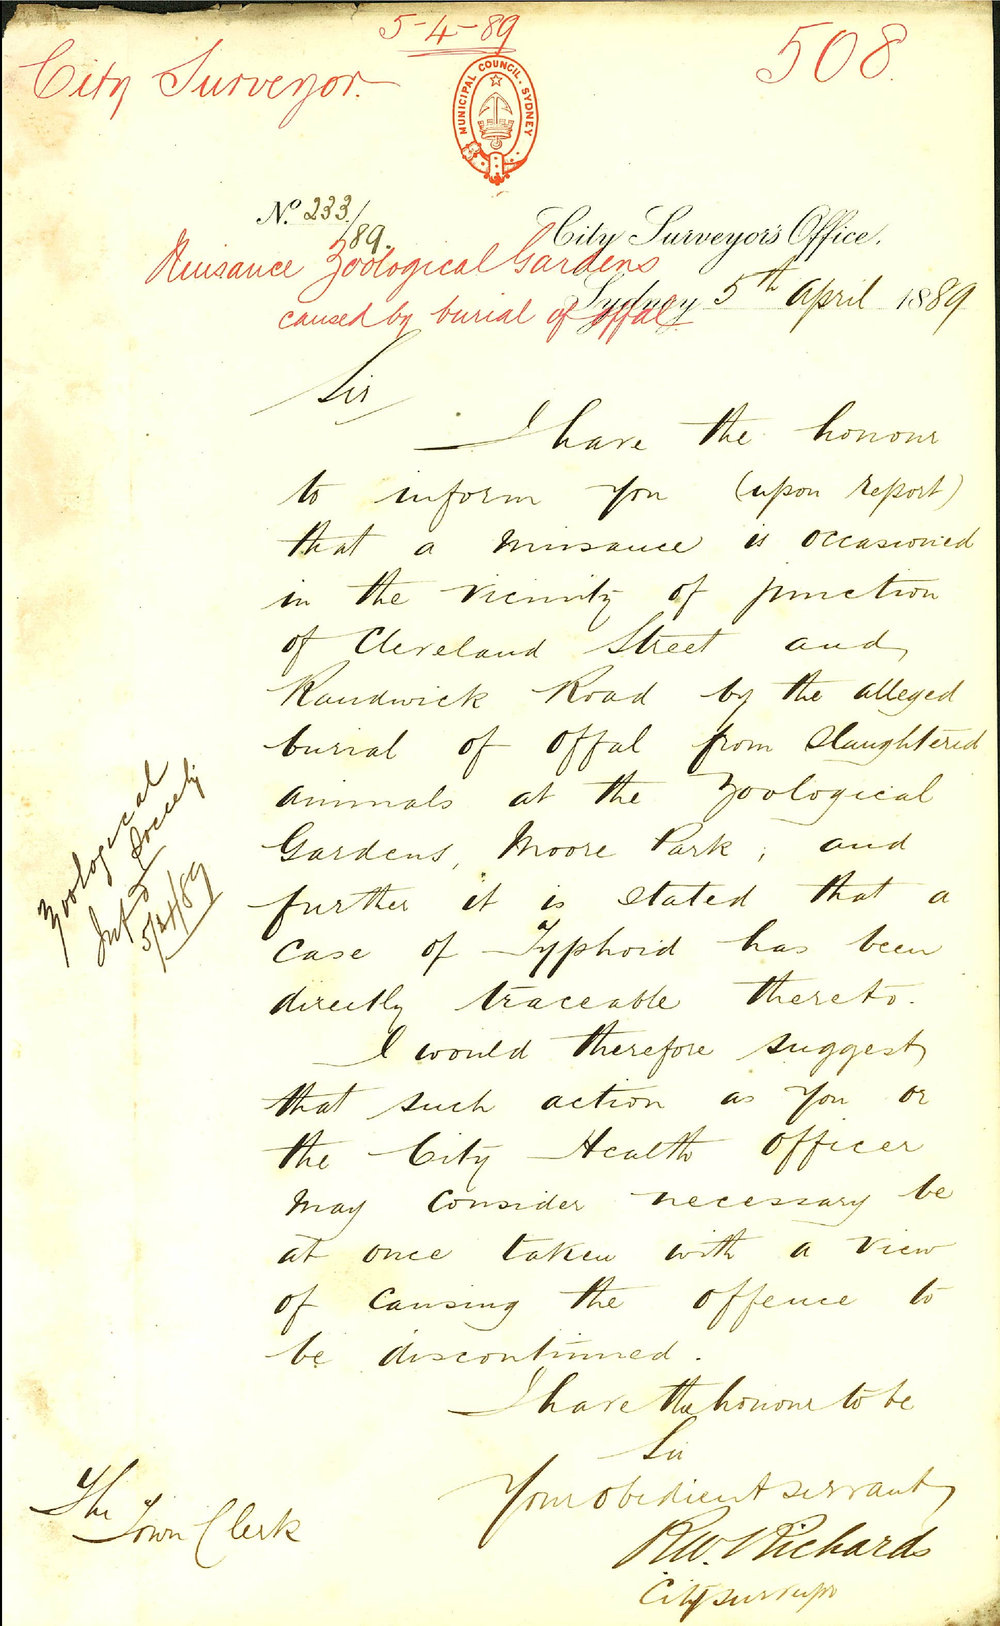 5-4-89
City Surveyor.
508.
MUNICIPAL COUNCIL. SYDNEY
No. 233/89.
City Surveyor's Office.
Nuisance Zoological Gardens
caused by burial of offal
Sydney 5th April 1889
Sir
I have the honour
to inform you (upon report)
that a nuisance is occasioned
in the vicinity of junction
of Cleveland Street and
Randwick Road by the alleged
burial of offal from slaughtered
animals at the Zoological
Gardens, Moore Park, and
further it is stated that a
case of Typhoid has been
directly traceable thereto.
I would therefore suggest
that such action as you or
the City Health Officer
may consider necessary be
at once taken with a view
of causing the offence to
be discontinued.
I have the honour to be
Sir
Your obedient servant
R.W. Richards
City Surveyor
The
Town Clerk
Zoological
Society
5/4/89